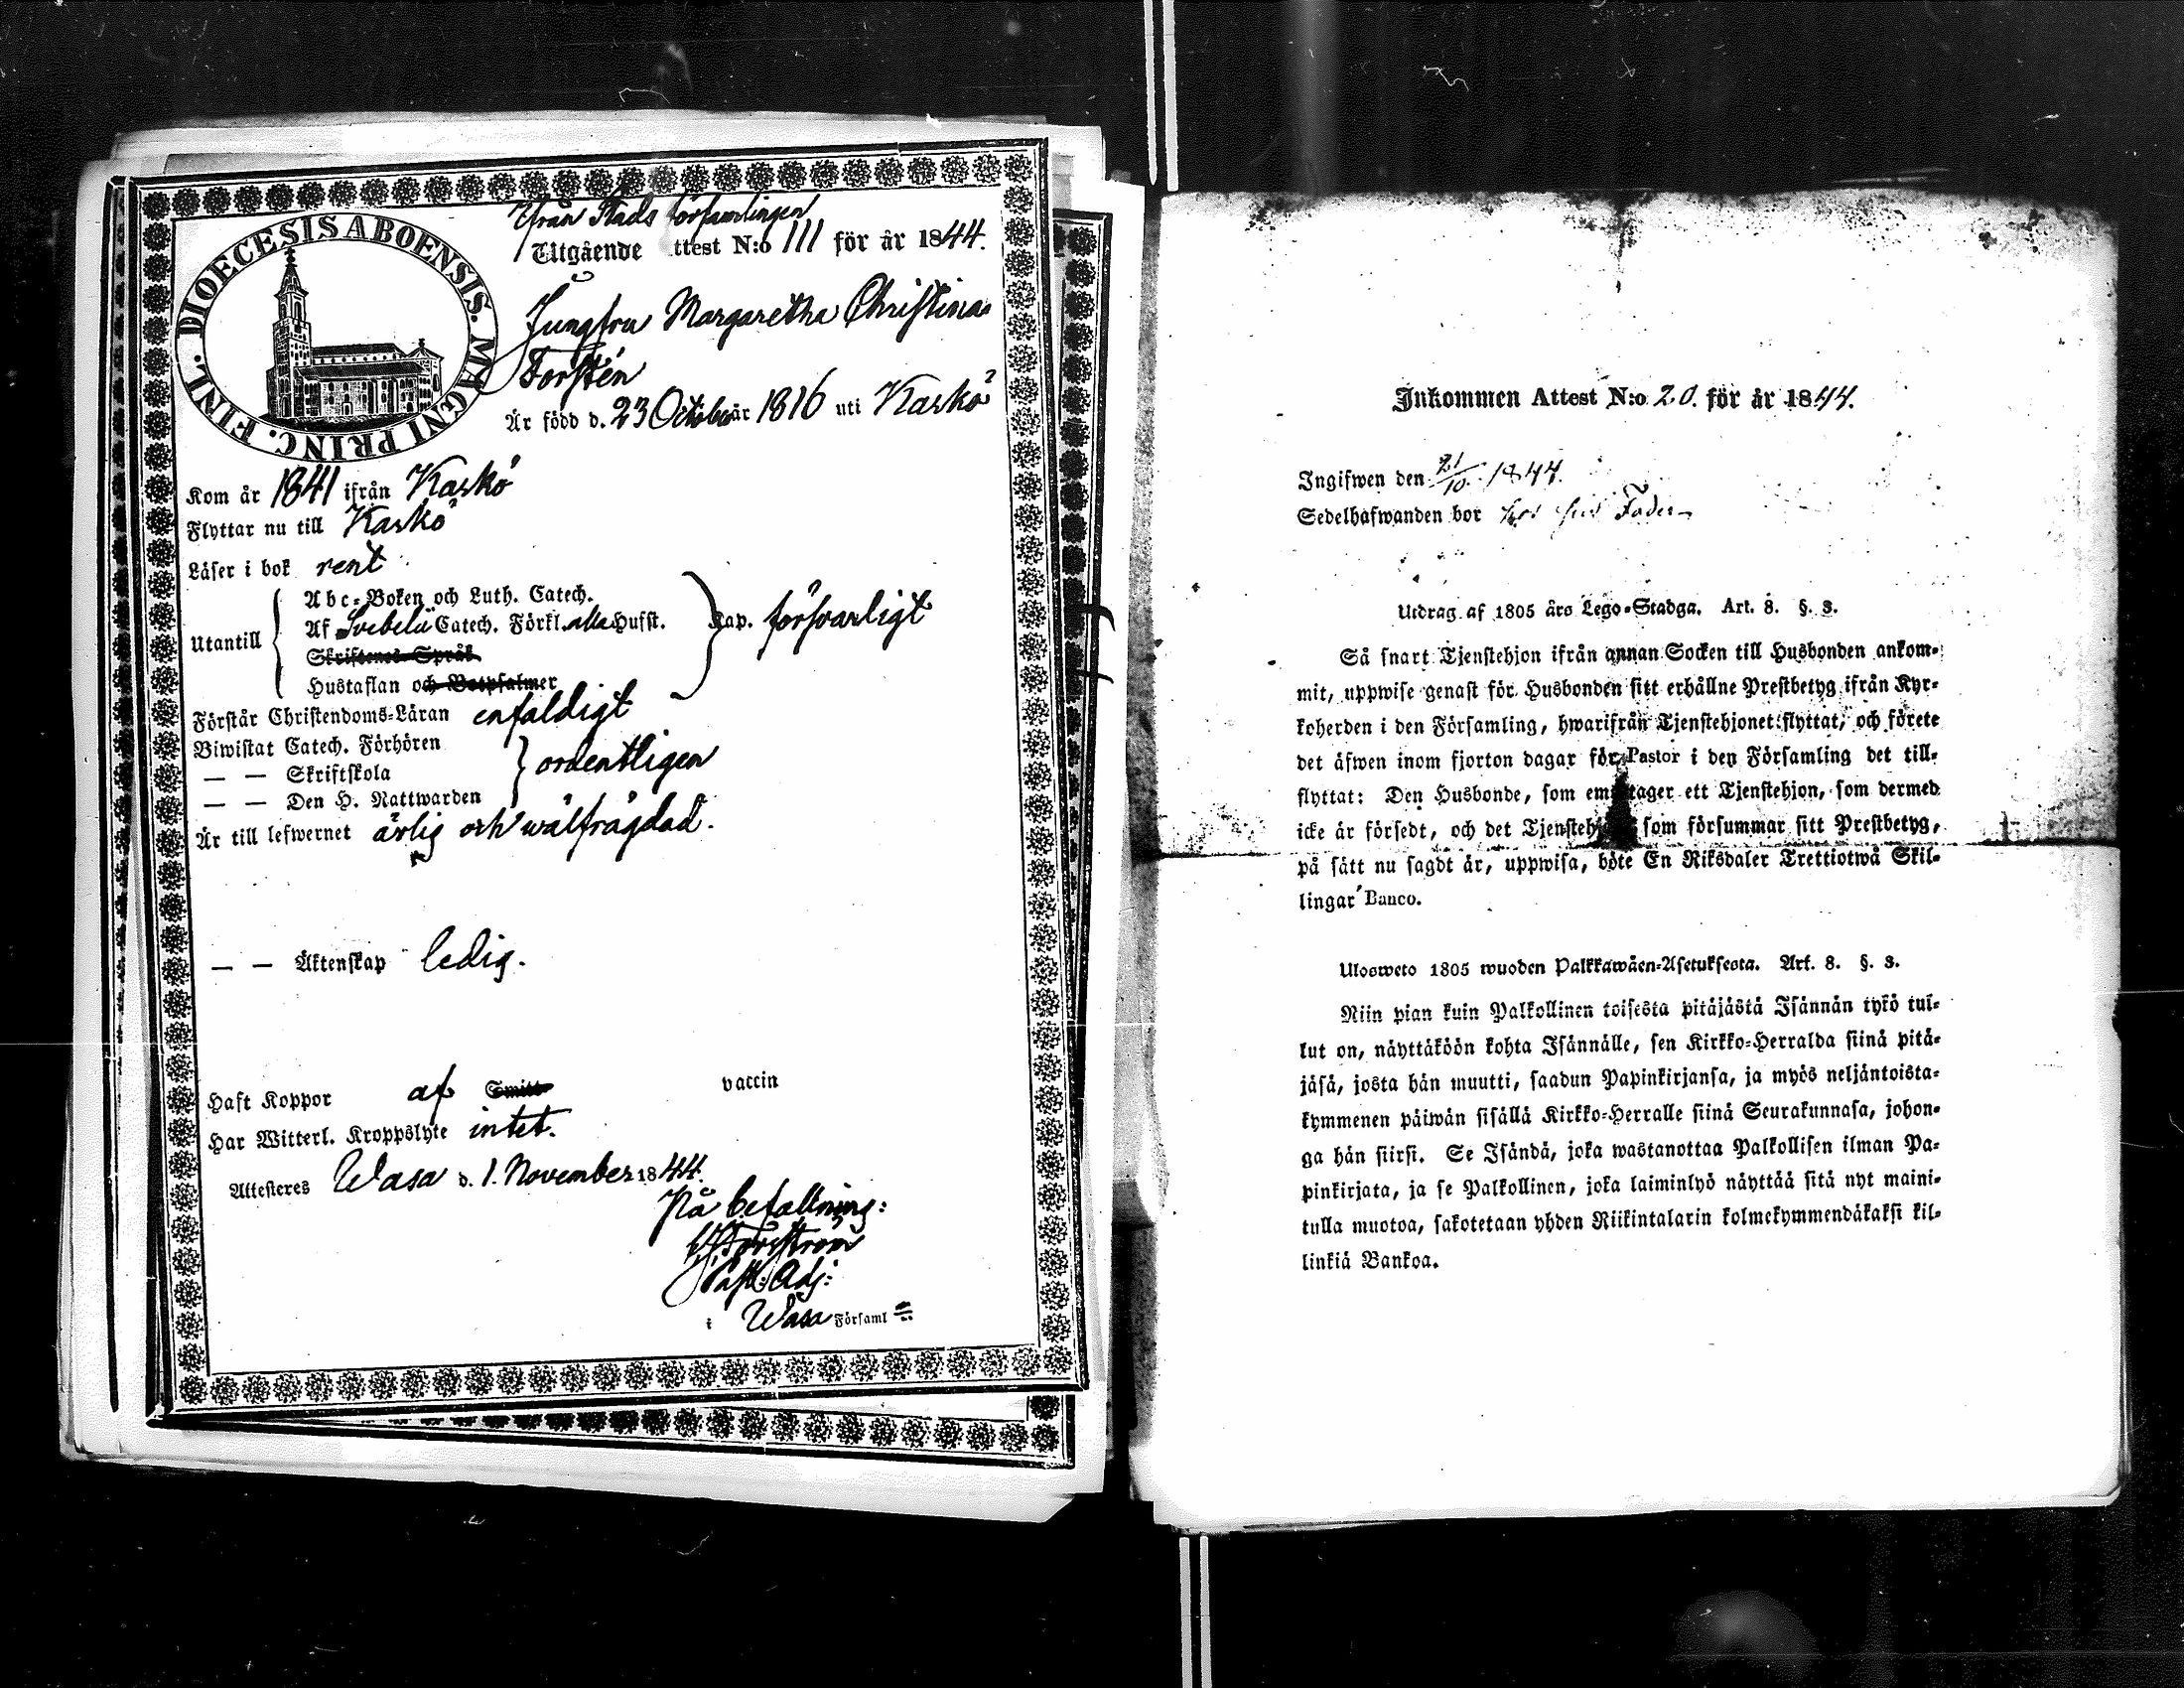 DIOECESIS ABOENSIS. MAGNI PRINC. FINL.
Ifrån Stads församlingen
Utgående ttest N:o 111 för år 1844.
Jungfru Margaretha Christina
Forstén
Är född d. 23 October år 1816 uti Kaskö
Kom år 1841 ifrån Kaskö
Flyttar nu till Kaskö
Läser i bok rent
Utantill
Abc-Boken och Luth. Catech.
Af Svebelii Catech. Förkl. alla Hufst.
Skriftenes Språk
Hustaflan och Botpsalmer
Kap. försvarligt
Förstår Christendoms-Läran enfaldigt
Biwistat Catech. Förhören
— — Skriftskola
— — Den H. Nattwarden
ordentligen
Är till lefwernet ärlig och wälfrägdad.
— — Äktenskap ledig.
Haft Koppor af Smitt vaccin
Har Witterl. Kroppslyte intet.
Attesteres Wasa d. 1. November 1844.
På befallning:
Forsström
Past: Adj:
i Wasa Församl
Inkommen Attest N:o 20. för år 1844.
Ingifwen den 21/10 1844.
Sedelhafwanden bor hos sin Fader
Utdrag af 1805 års Lego-Stadga. Art. 8. §. 3.
Så snart Tjenstehjon ifrån annan Socken till Husbonden ankom-
mit, uppwise genast för Husbonden sitt erhållne Prestbetyg ifrån Kyr-
koherden i den Församling, hwarifrån Tjenstehjonet flyttat, och förete
det äfwen inom fjorton dagar för Pastor i den Församling det till-
flyttat: Den Husbonde, som emottager ett Tjenstehjon, som dermed
icke är försedt, och det Tjenstehjon som försummar sitt Prestbetyg,
på sätt nu sagdt är, uppwisa, böte En Riksdaler Trettiotwå Skil-
lingar Banco.
Ulosweto 1805 wuoden Palkkawäen-Asetuksesta. Art. 8. §. 3.
Niin pian kuin Palkollinen toisesta pitäjästä Isännän tykö tul-
lut on, näyttäköön kohta Isännälle, sen Kirkko-Herralda siinä pitä-
jäsä, josta hän muutti, saadun Papinkirjansa, ja myös neljäntoista-
kymmenen päiwän sisällä Kirkko-Herralle siinä Seurakunnasa, johon-
ga hän siirsi. Se Isändä, joka wastanottaa Palkollisen ilman Pa-
pinkirjata, ja se Palkollinen, joka laiminlyö näyttää sitä nyt maini-
tulla muotoa, sakotetaan yhden Riikintalarin kolmekymmendäkaksi kil-
linkiä Bankoa.